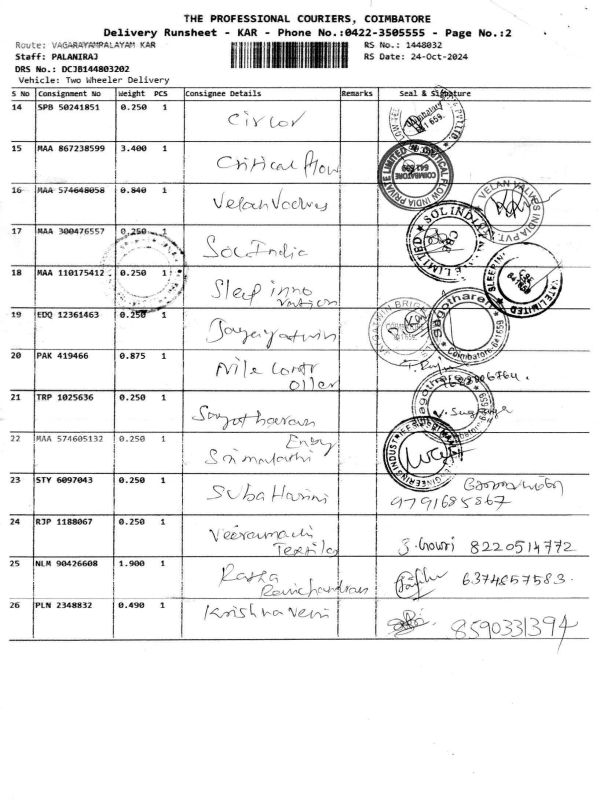 THE PROFESSIONAL COURIERS, COIMBATORE
Delivery Runsheet - KAR - Phone No.:0422-3505555 - Page No.:2
Route: VAGARAYAMPALAYAM KAR
RS No.: 1448032
Staff: PALANIRAJ
RS Date: 24-Oct-2024
DRS No.: DCJB144803202
Vehicle: Two Wheeler Delivery
S No Consignment No Weight PCS Consignee Details Remarks Seal & Signature
14 SPB 50241851 0.250 1 Circor
15 MAA 867238599 3.400 1 Critical flow
CRITICAL FLOW INDIA PRIVATE LIMITED COIMBATORE
16 MAA 574648058 0.840 1 Velan Valves
VELAN VALVES INDIA PVT.
17 MAA 300476557 0.250 1 Sol India
SOL INDIA LIMITED
18 MAA 110175412 0.250 1 Sleep inno
vation
19 EDQ 12361463 0.250 1
Coimbatore-641659
20 PAK 419466 0.875 1 Nile Contr
oller
21 TRP 1025636 0.250 1
22 MAA 574605132 0.250 1
23 STY 6097043 0.250 1 Suba Harini
9791685867
24 RJP 1188067 0.250 1 Veeramachi
Textiles 8220514772
25 NLM 90426608 1.900 1
Ramchandran 6374857583
26 PLN 2348832 0.490 1 Krishnaveni
8590331394